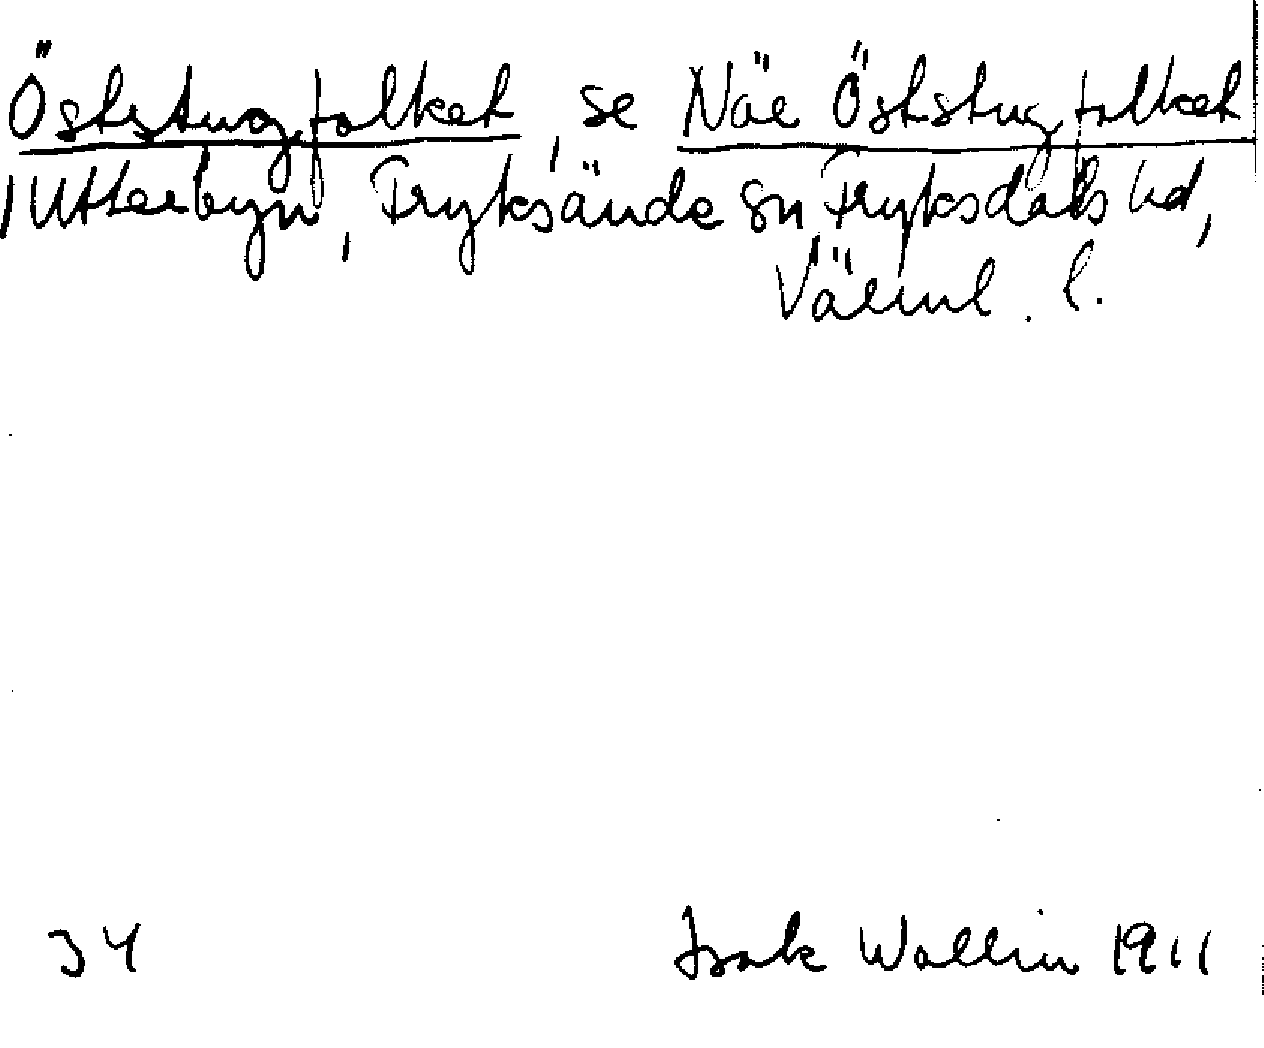 Öststugfolket, se När Öststugfolket
i Utterbyn, Fryksände sn, Fryksdals hd,
Värml. l.
34 Isak Wallin 1911